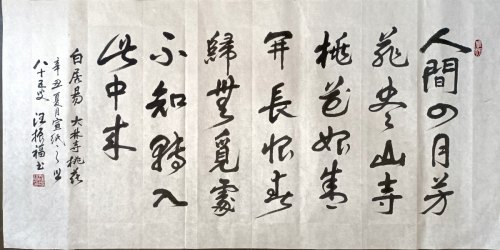 人間四月芳
菲盡山寺
桃花始盛
開長恨春
歸無覓處
不知轉入
此中来
白居易 大林寺桃花
辛丑夏月宣紙之乡
八十五叟 汪振福书